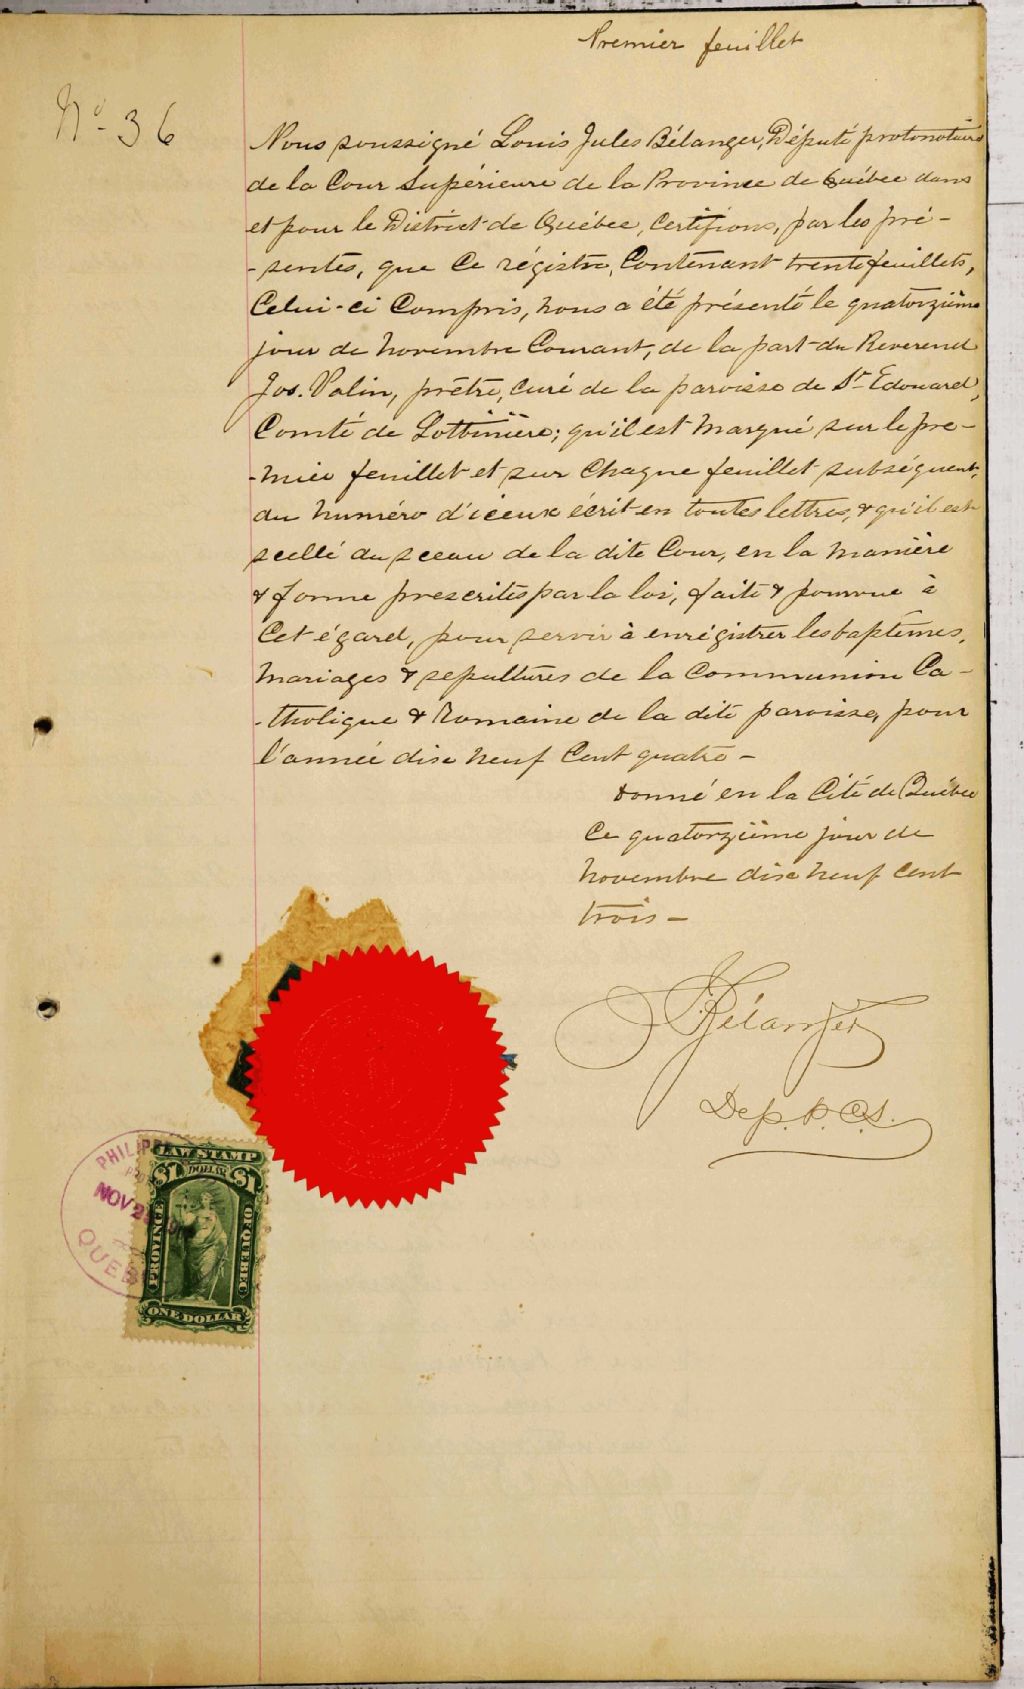 Premier feuillet
No 36
Nous soussigné Louis Jules Bélanger, Député protonotaire
de la Cour Supérieure de la Province de Québec dans
et pour le District de Québec, Certifions, par les pré-
-sentes, que Ce régistre, Contenant trente feuillets,
Celui-ci Compris, nous a été présenté le quatorzième
jour de novembre Courant, de la part du Reverend
Jos. Valin, prêtre, curé de la paroisse de St Edouard,
Comté de Lotbinière; qu'il est marqué sur le pre-
-mier feuillet et sur Chaque feuillet subséquent,
du numéro d'iceux écrit en toutes lettres, & qu'il est
scellé du sceau de la dite Cour, en la manière
& forme prescrites par la loi, faite & pourvue à
Cet égard, pour servir à enrégistrer les baptêmes,
mariages & sepultures de la Communion Ca-
-tholique & Romaine de la dite paroisse, pour
l'année dix neuf Cent quatre -
Donné en la Cité de Québec
Ce quatorzième jour de
novembre dix neuf Cent
trois -
Bélanger
Dep. P. C. S.
PHILIPP
NOV 2
QUEB
LAW STAMP
$1 DOLLAR $1
PROVINCE OF QUEBEC
ONE DOLLAR